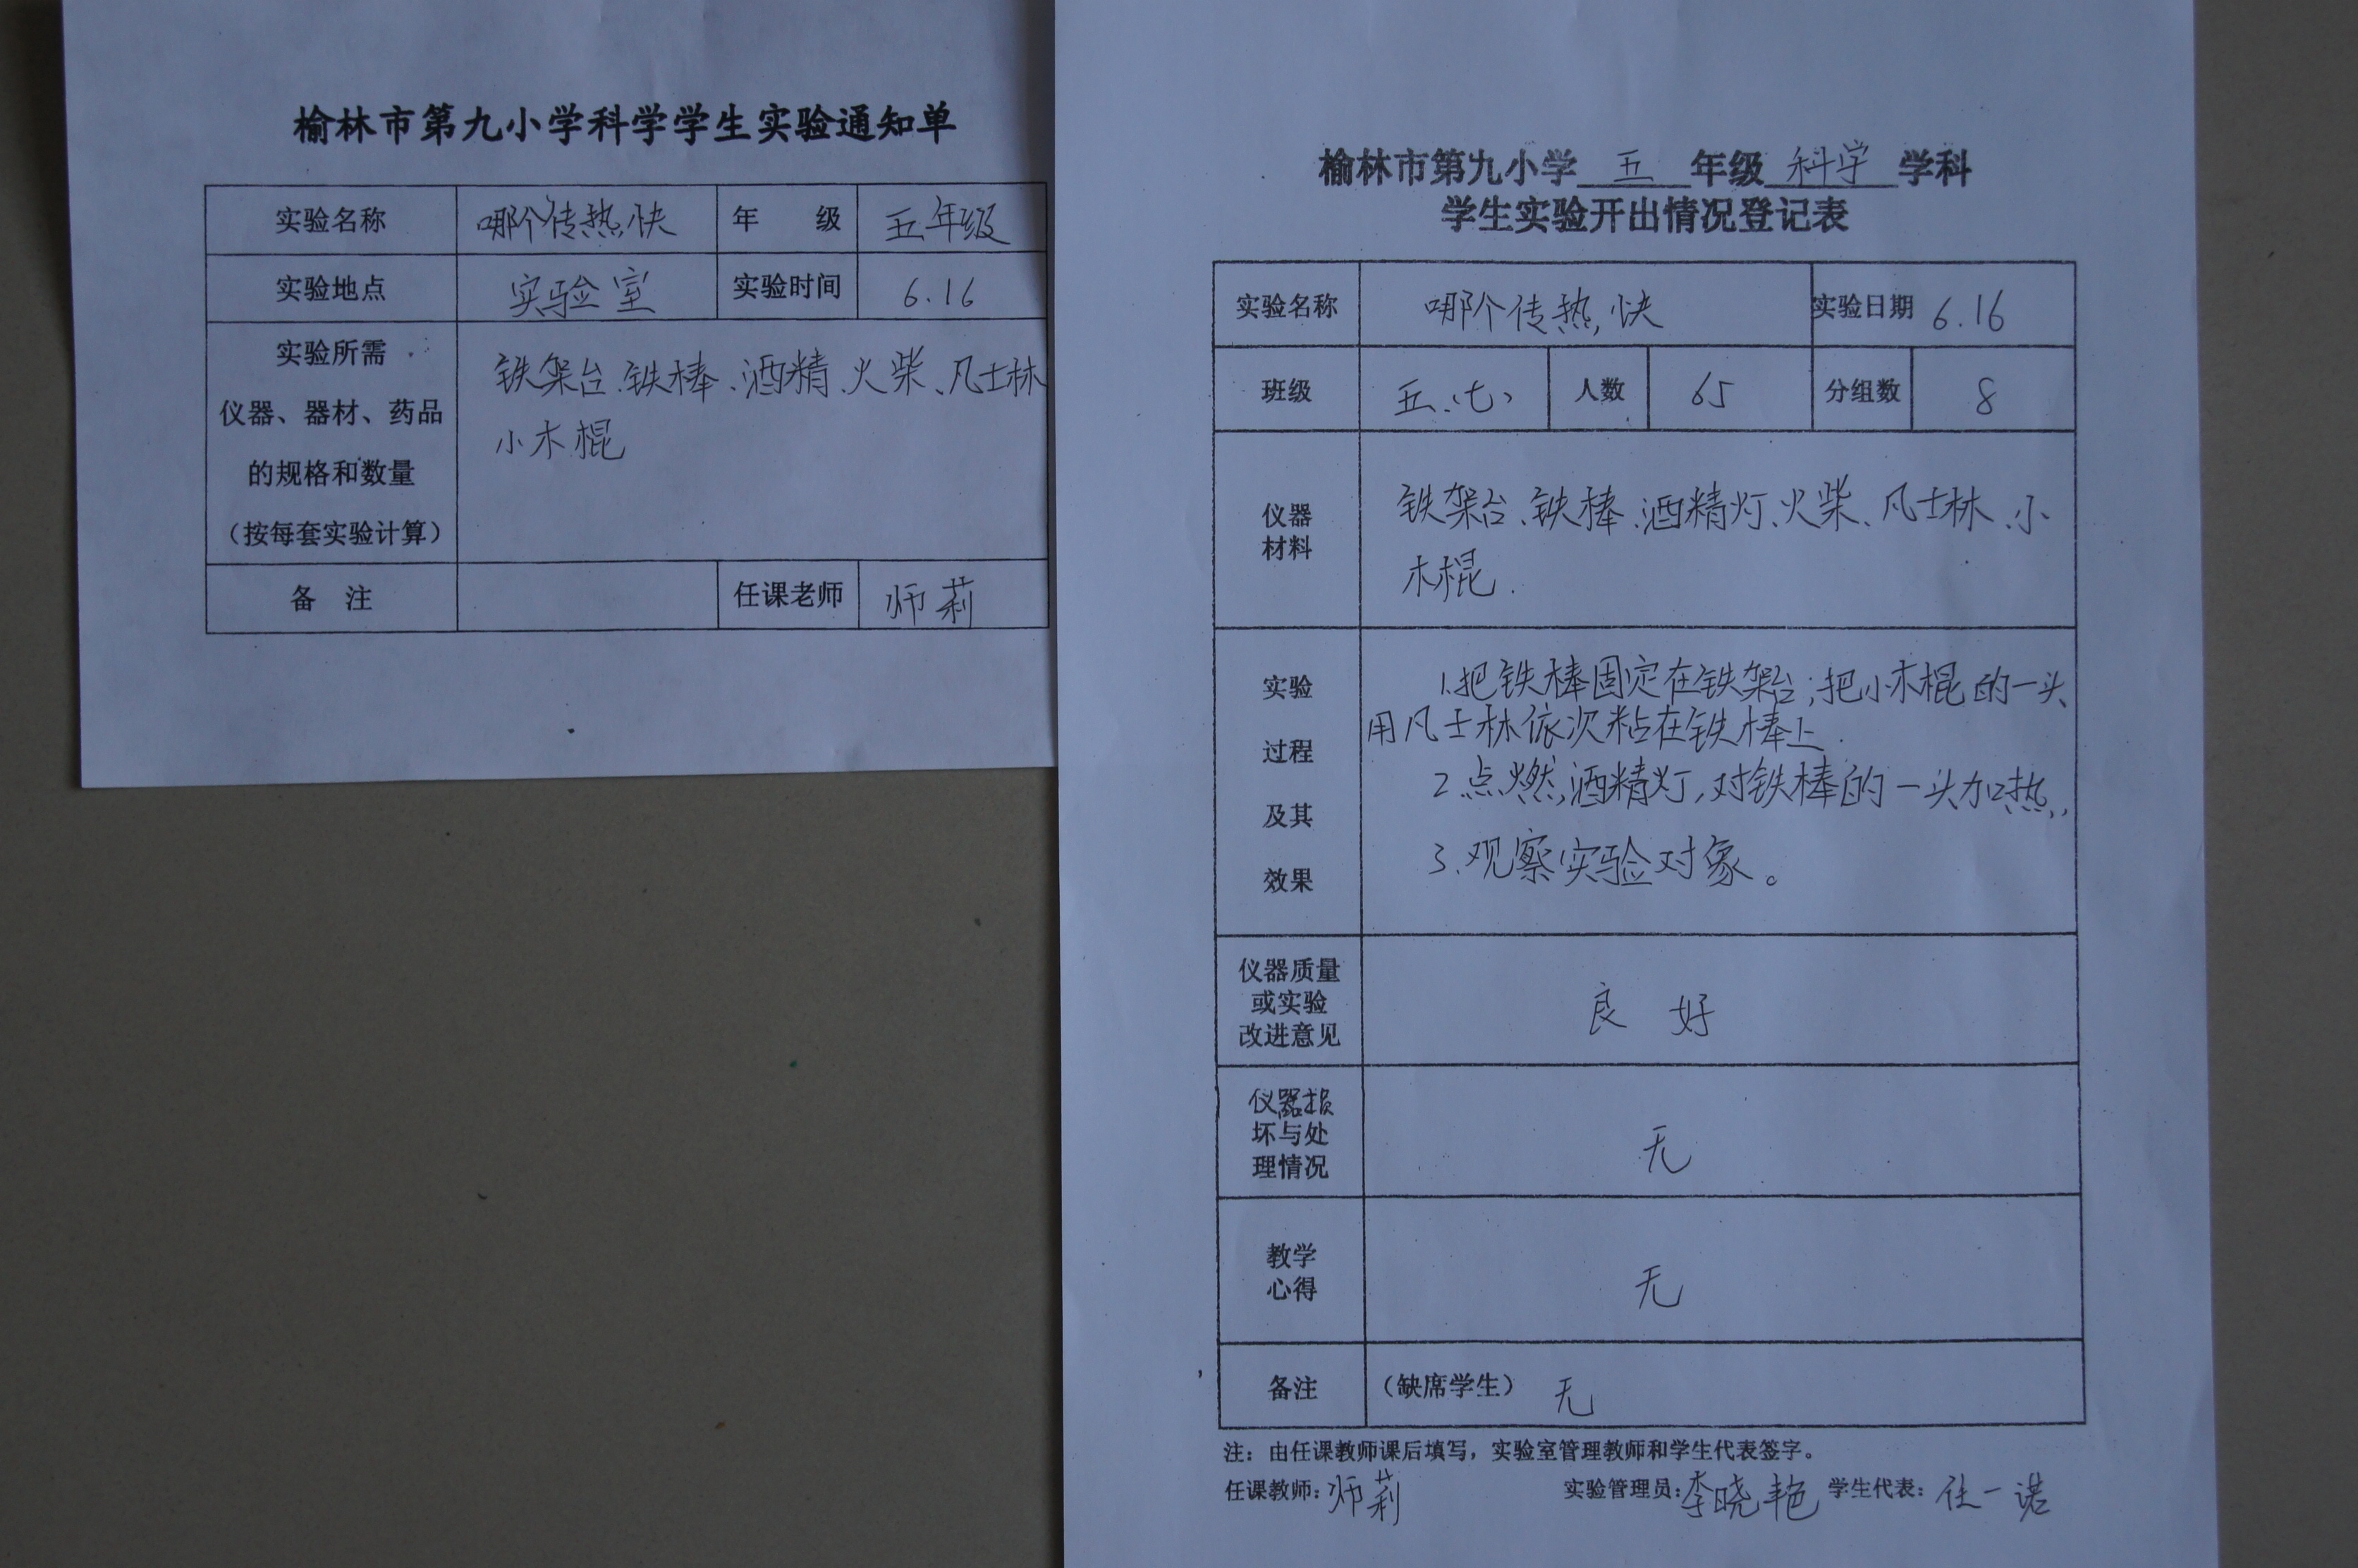 榆林市第九小学科学学生实验通知单
实验名称 哪个传热快 年 级 五年级
实验地点 实验室 实验时间 6.16
实验所需
仪器、器材、药品
的规格和数量
（按每套实验计算）
铁架台、铁棒、酒精、火柴、凡士林
小木棍
备 注 任课老师 师莉
榆林市第九小学 五 年级 科学 学科
学生实验开出情况登记表
实验名称 哪个传热快 实验日期 6.16
班级 五、(七) 人数 65 分组数 8
仪器
材料
铁架台、铁棒、酒精灯、火柴、凡士林、小
木棍.
实验
过程
及其
效果
1.把铁棒固定在铁架台;把小木棍的一头
用凡士林依次粘在铁棒上.
2.点燃酒精灯,对铁棒的一头加热,
3.观察实验对象。
仪器质量
或实验
改进意见
良 好
仪器损
坏与处
理情况
无
教学
心得
无
备注 （缺席学生） 无
注：由任课教师课后填写，实验室管理教师和学生代表签字。
任课教师：师莉 实验管理员：李晓艳 学生代表：任一诺